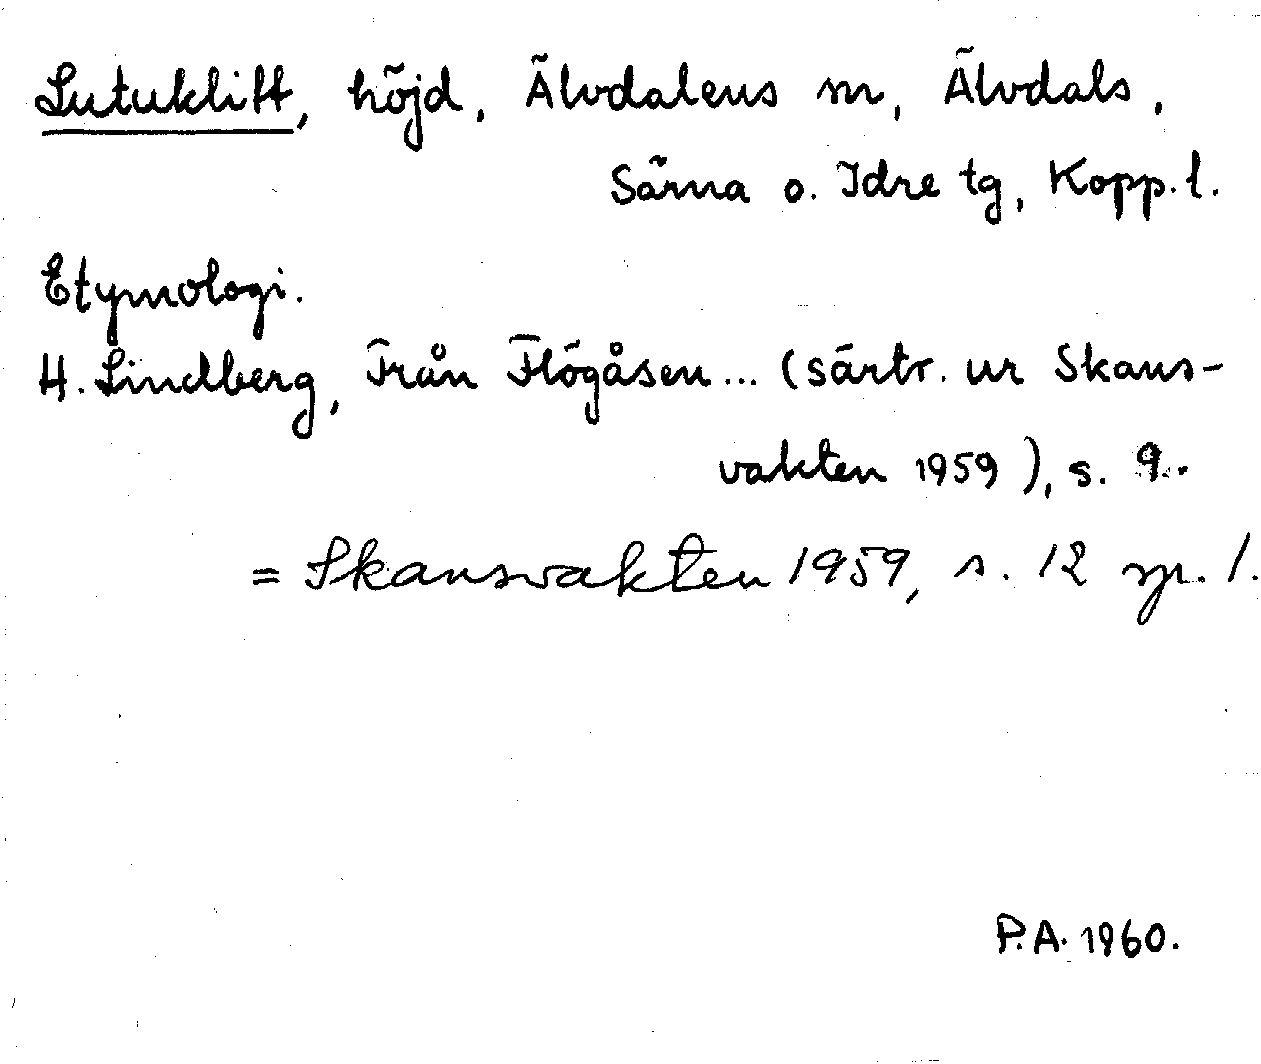 Lutuklitt, höjd, Älvdalens sn, Älvdals,
Särna o. Idre tg, Kopp. l.
Etymologi.
H. Lindberg, Från Flögåsen... (särtr. ur Skans-
vakten 1959), s. 9.
= Skansvakten 1959, s. 12 sp. 1.
P.A. 1960.